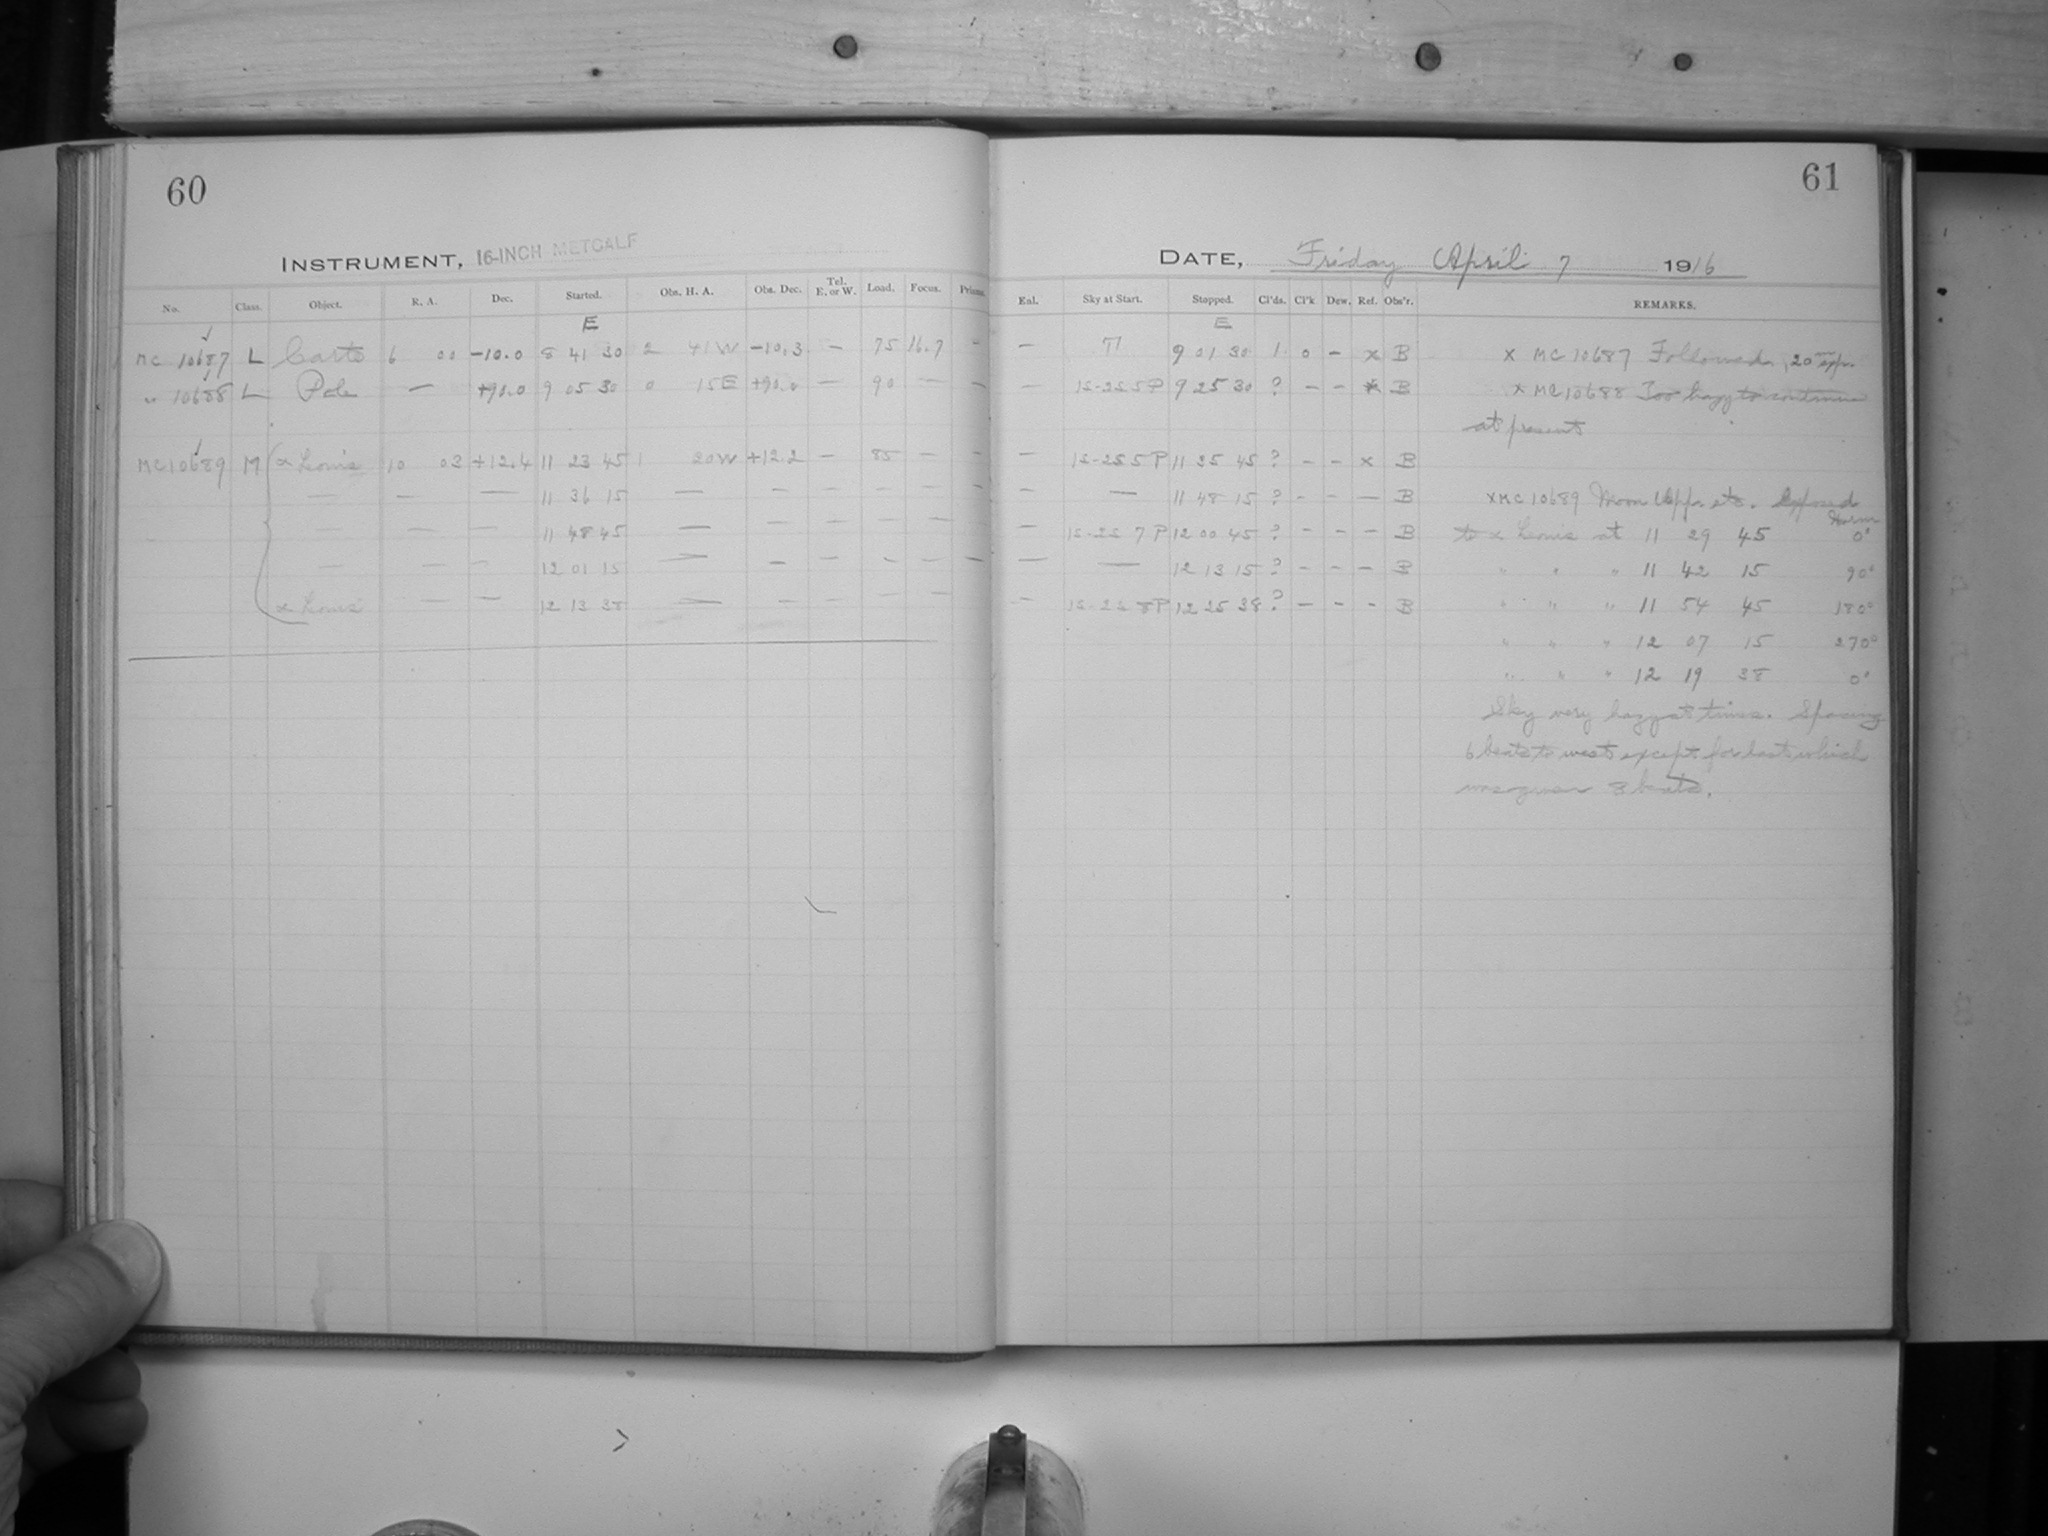 60
INSTRUMENT, 16-INCH METCALF
No. Class. Object. R. A. Dec. Started. Obs. H. A. Obs. Dec. Tel. E. or W. Load. Focus. Prisms.
E
MC 10687 L Carte 6 00 -10.0 8 41 30 2 41 W -10.3 — 75 16.7 -
" 10688 L Pole — +90.0 9 05 30 0 15 E +90.0 — 90 — —
MC 10689 M α Leonis 10 03 +12.4 11 23 45 1 20 W +12.2 — 85 — —
— — — 11 36 15 — — — — — —
— — — 11 48 45 — — — — —
— — — 12 01 15 — — — — — —
α Leonis — — 12 13 38 — — — — —
61
DATE, Friday April 7 1916
Enl. Sky at Start. Stopped. Cl'ds. Cl'k Dew. Ref. Obs'r. REMARKS.
E
— 9 01 30 1 0 - x B x MC 10687 Followed, 20 m exp.
— 1S-2S 5P 9 25 30 ? — — x B x MC 10688 Too hazy to continue
at present
— 1S-2S 5P 11 35 45 ? - - x B
— — 11 48 15 ? - - — B x MC 10689 Moon Opp. etc. Exposed
— 1S-2S 7P 12 00 45 ? - - - B to α Leonis at 11 29 45 0°
— — 12 13 15 ? - - - B " " " 11 42 15 90°
— 1S-2S 8P 12 25 38 ? — - - B " " " 11 54 45 180°
" " " 12 07 15 270°
" " " 12 19 38 0°
Sky very hazy at times. Spacing
6 beats to west except for last which
was given 8 beats.